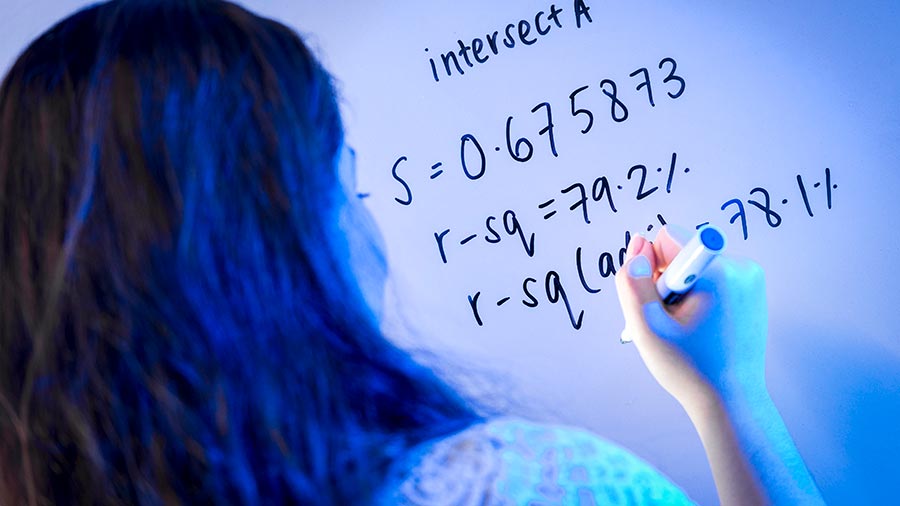 intersect A
S = 0.675873
r-sq = 79.2%
r-sq (adj) = 78.1%